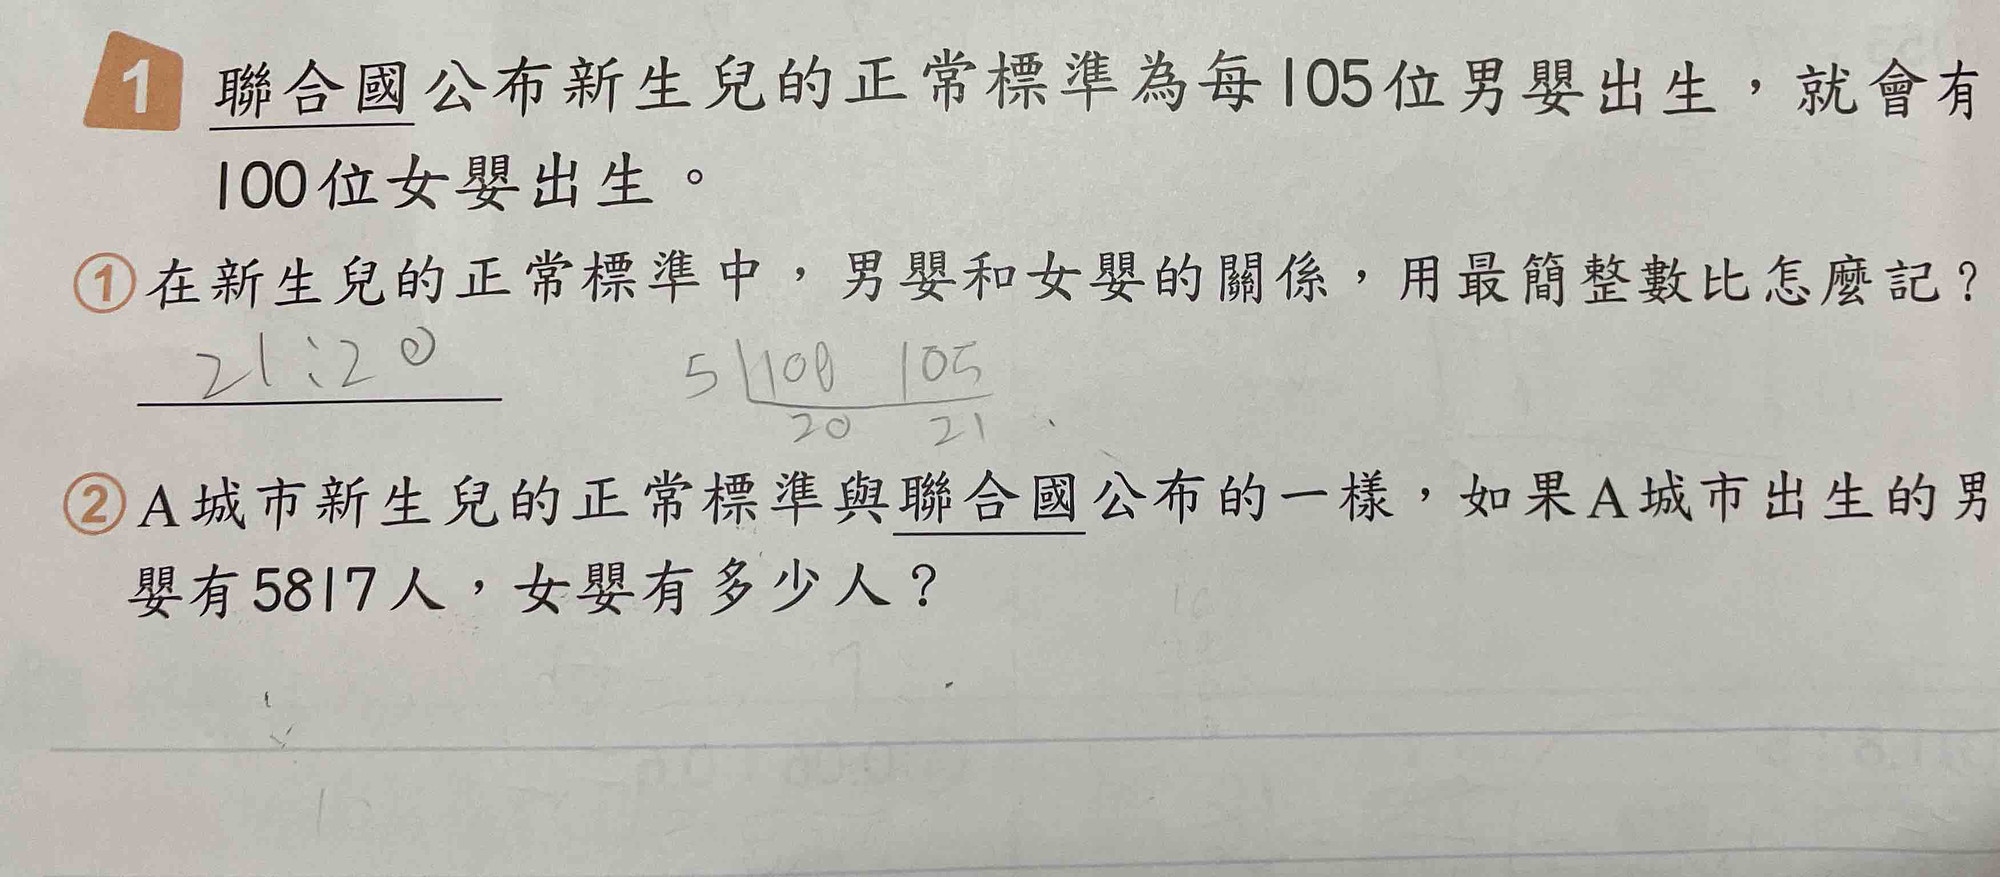 1 聯合國公布新生兒的正常標準為每105位男嬰出生，就會有
100位女嬰出生。
①在新生兒的正常標準中，男嬰和女嬰的關係，用最簡整數比怎麼記？
21:20
5 100 105
20 21
②A城市新生兒的正常標準與聯合國公布的一樣，如果A城市出生的男
嬰有5817人，女嬰有多少人？